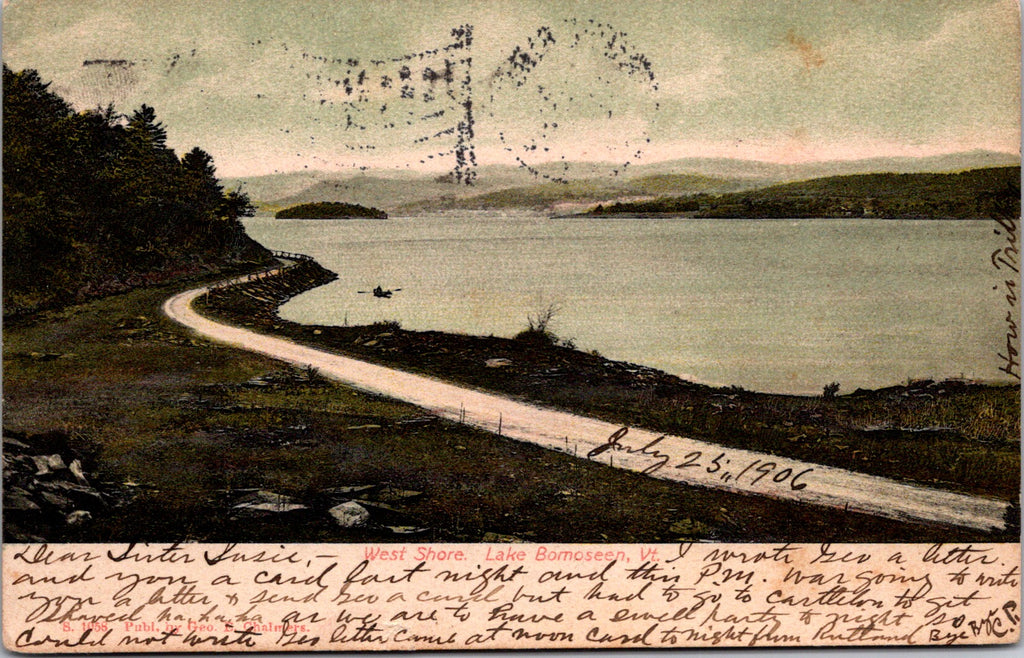 July 25, 1906
How is Trill
West Shore. Lake Bomoseen, Vt.
Dear Sister Susie, - I wrote Geo a letter.
and you a card last night and this P.M. was going to write
you a letter & send Geo a card but had to go to Castleton to get
as we are to have a swell party to night so
S. 1956. Publ. by Geo. E. Chalmers.
could not write Geo letter came at noon card to night from Rutland Bye Bye
C. P.